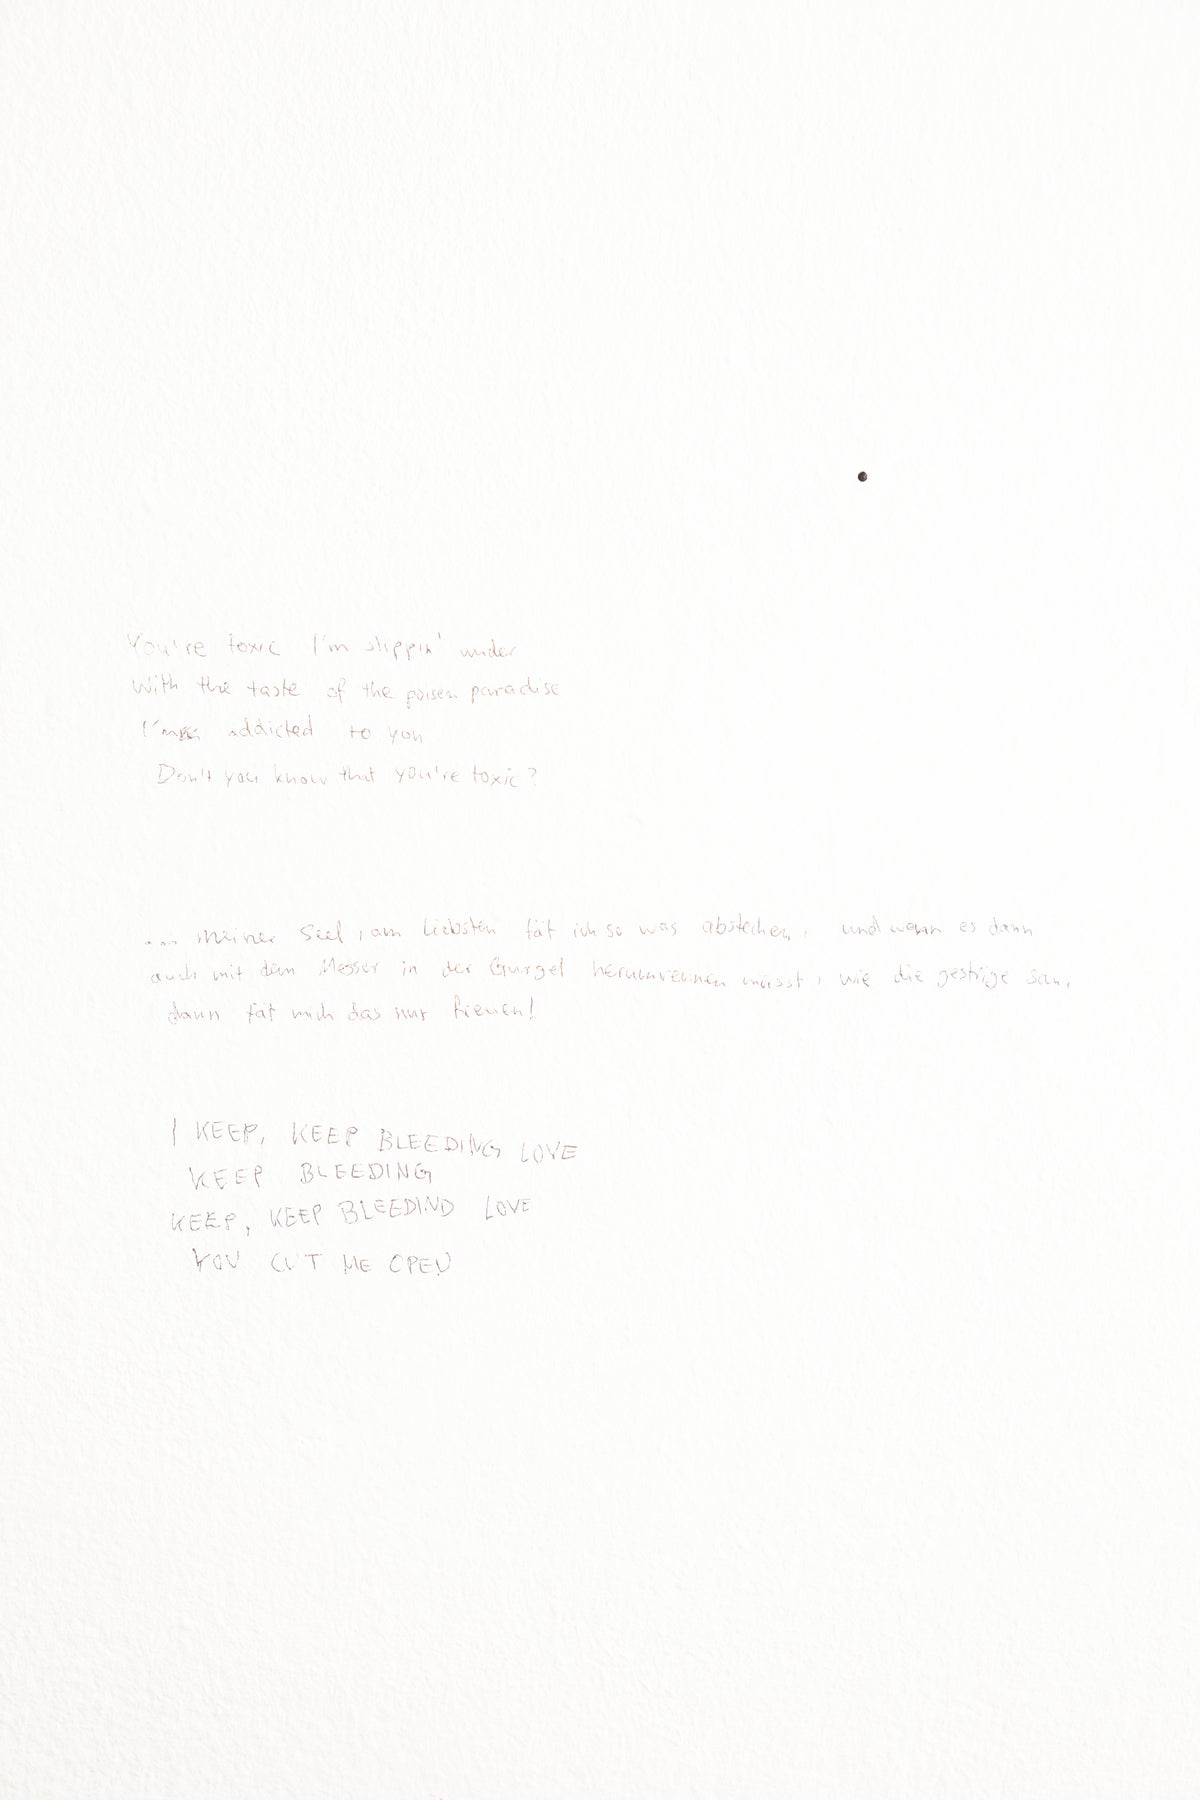 You're toxic I'm slippin' under
With the taste of the poisen paradise
I'm addicted to you
Don't you know that you're toxic?
... meiner Seel, am liebsten tät ich so was abstechen, und wenn es dann
auch mit dem Messer in der Gurgel herumrennen müsst, wie die gestrige Sau,
dann tät mich das nur freuen!
I KEEP, KEEP BLEEDING LOVE
KEEP BLEEDING
KEEP, KEEP BLEEDIND LOVE
YOU CUT ME OPEN